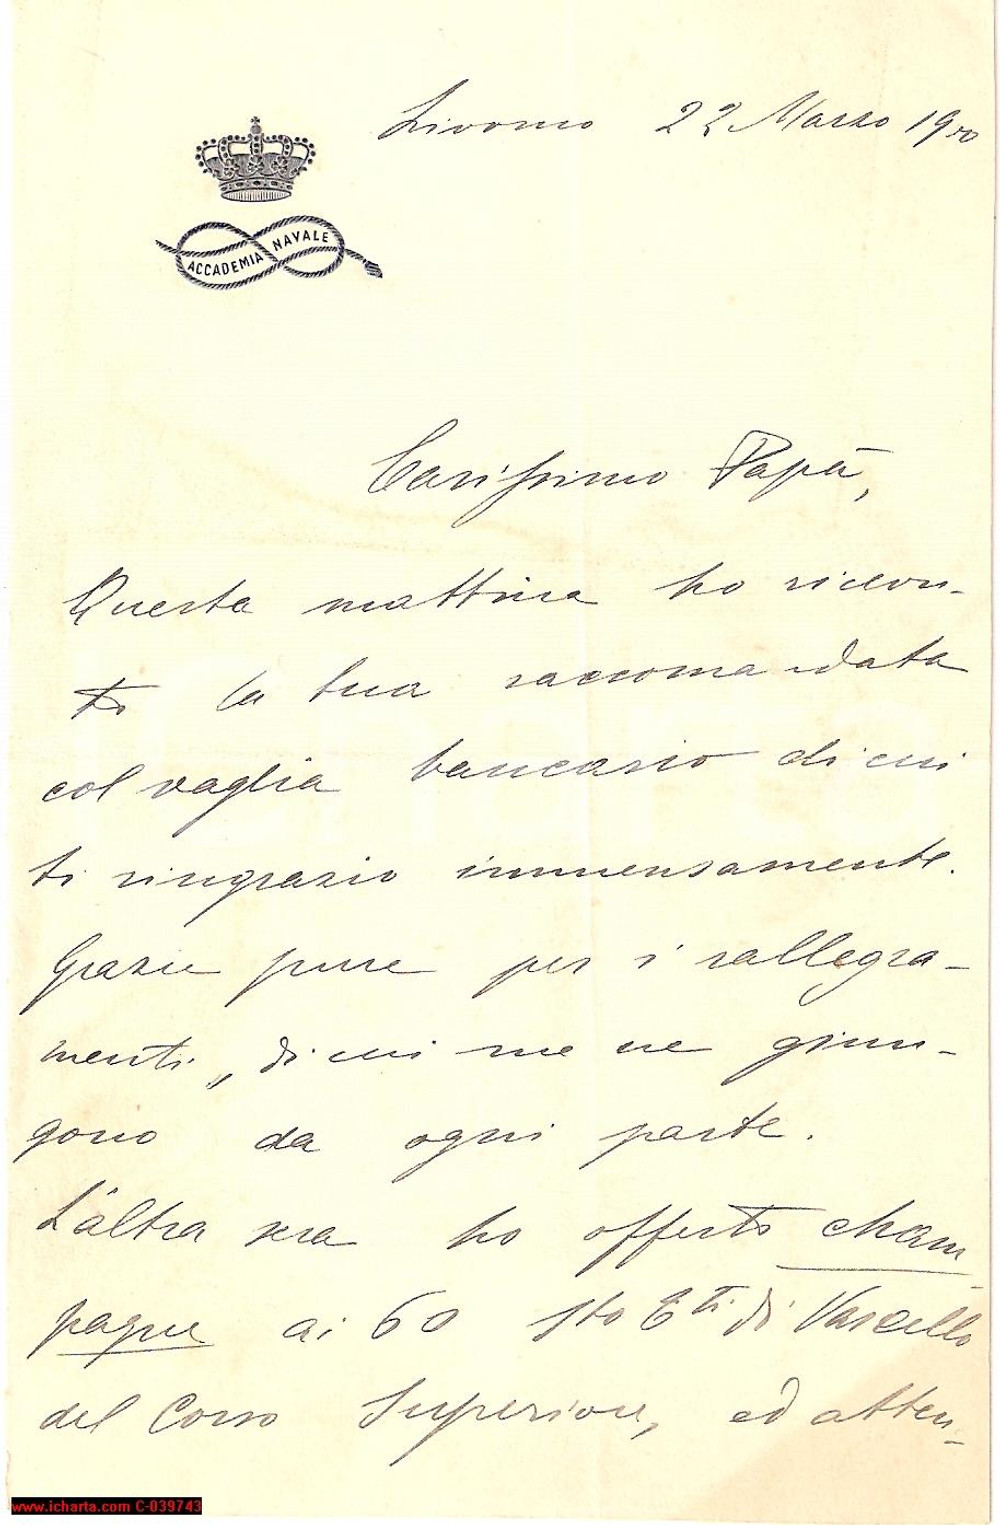 Livorno 22 Marzo 1900
ACCADEMIA NAVALE
Carissimo Papà,
Questa mattina ho ricevu-
to la tua raccomandata
col vaglia bancario di cui
ti ringrazio immensamente.
Grazie pure per i rallegra-
menti, di cui me ne giun-
gono da ogni parte.
L'altra sera ho offerto cham-
pagne ai 60 Sto Tti di Vascello
del Corso Superiore, ed atten-
www.icharta.com C-039743